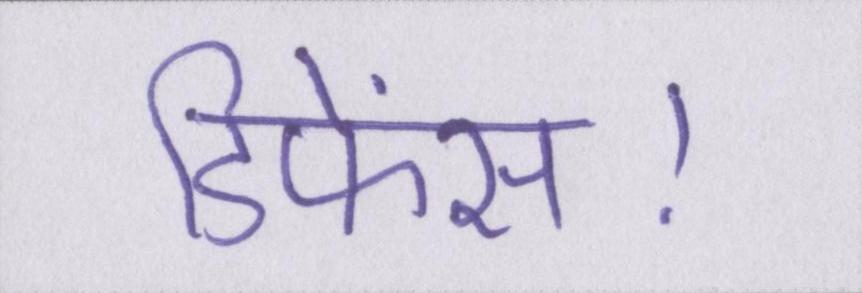 डिफेंस!